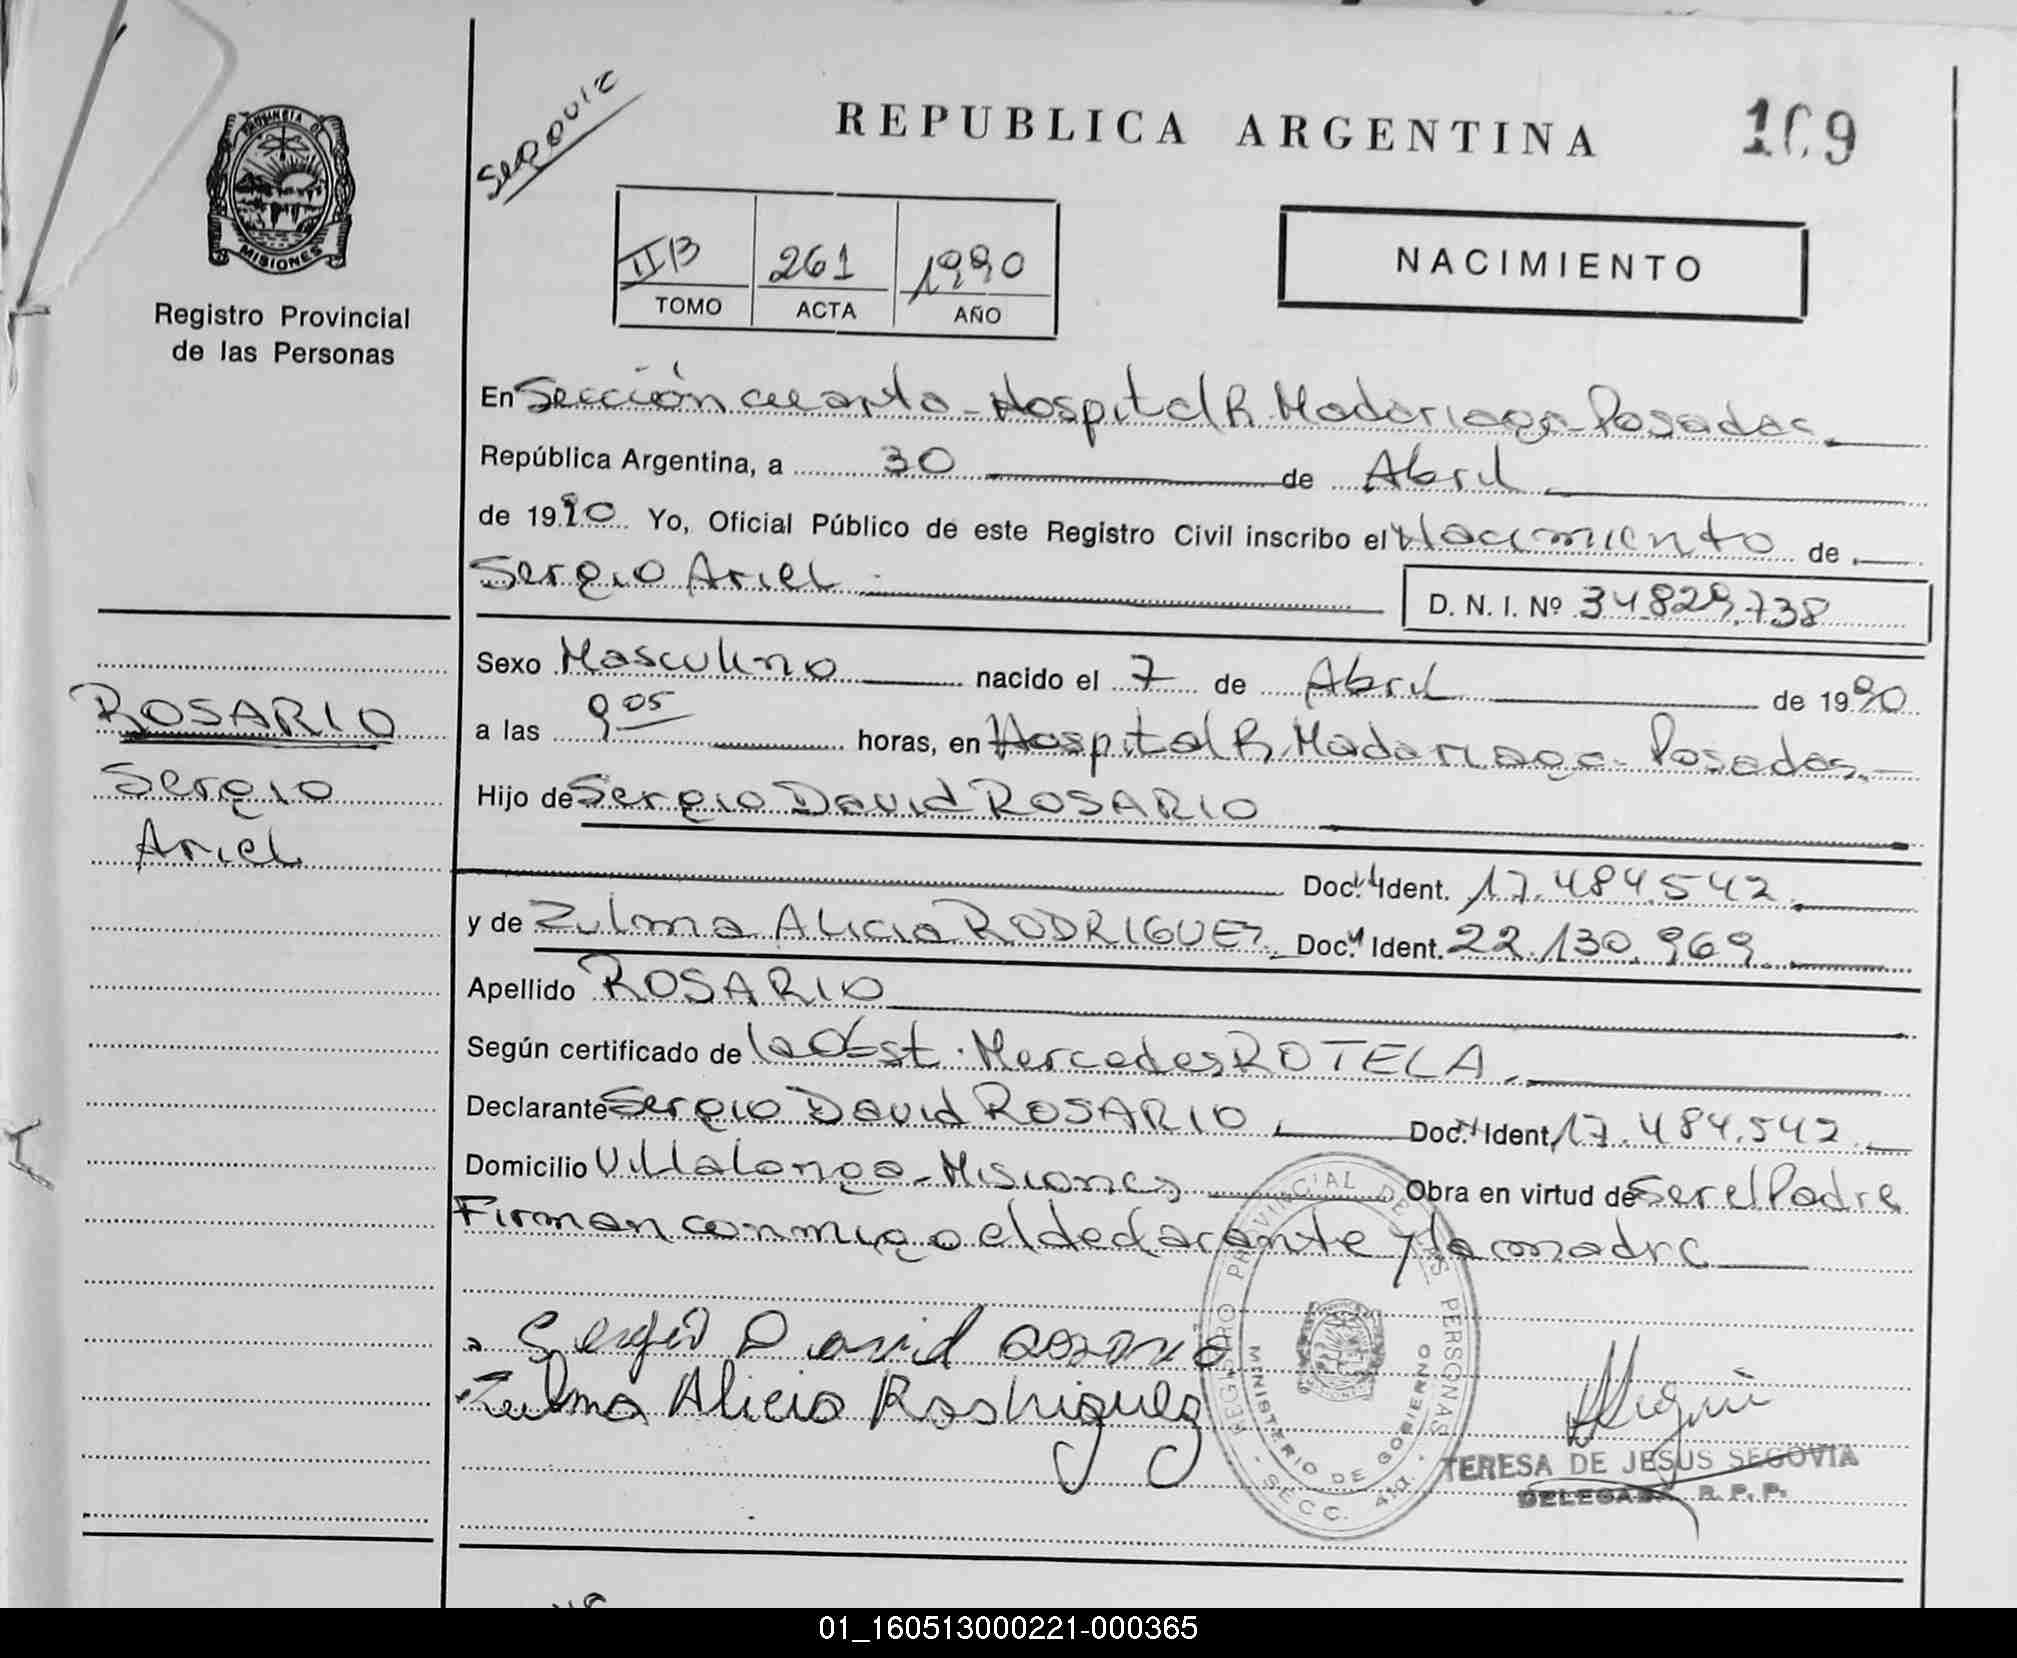 PROVINCIA DE
MISIONES
Registro Provincial
de las Personas
ROSARIO
Sergio
Ariel
REPUBLICA ARGENTINA
109
II B 261 1990
TOMO ACTA AÑO
NACIMIENTO
En Sección cuarta - Hospital R. Madariaga - Posadas.
República Argentina, a 30 de Abril
de 1990 Yo, Oficial Público de este Registro Civil inscribo el Nacimiento de
Sergio Ariel D. N. I. Nº 34.829.738
Sexo Masculino nacido el 7 de Abril de 1990
a las 9 05 horas, en Hospital R. Madariaga - Posadas.
Hijo de Sergio David ROSARIO
Doc. Ident. 17.484.542
y de Zulma Alicia RODRIGUEZ Doc. Ident. 22.130.969.
Apellido ROSARIO
Según certificado de la Obst. Mercedes ROTELA.
Declarante Sergio David ROSARIO Doc. Ident. 17.484.542
Domicilio Villalonga - Misiones Obra en virtud de ser el Padre
Firman conmigo el declarante y la madre
Sergio David Rosario
Zulma Alicia Rodriguez
REGISTRO PROVINCIAL DE LAS PERSONAS
MINISTERIO DE GOBIERNO
SECC. 4ta.
TERESA DE JESUS SEGOVIA
DELEGADA R. P. P.
01_160513000221-000365